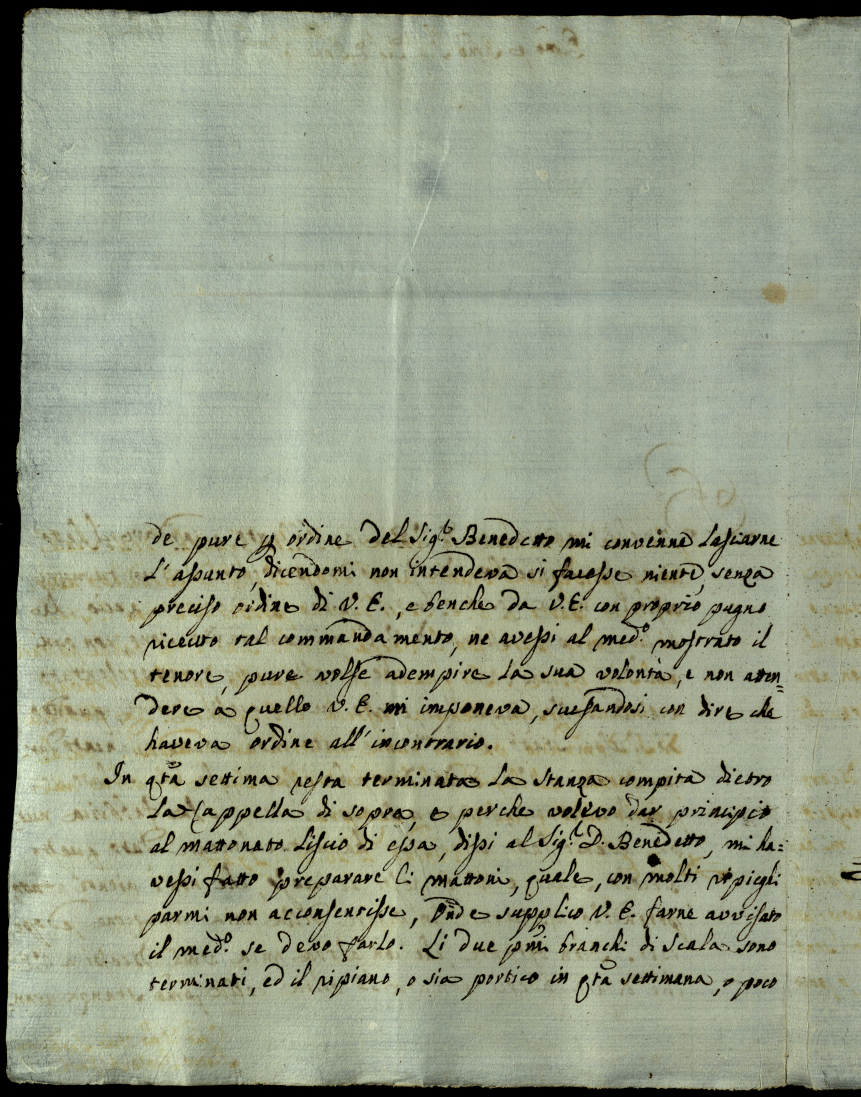 de pure p ordine del Sig.r Benedetto mi convenne lasciarne
l'assunto, dicendomi non intendeva si facesse niente, senza
preciso ordine di V. E., e benche da V. E. con proprio pugno
ricevuto tal commandamento, ne avessi al med.o mostrato il
tenore, pure volse adempire la sua volontà, e non atten=
dere a quello V. E. mi imponeva, scusandosi con dire che
haveva ordine all'incontrario.
In qta settima resta terminata la stanza compita dietro
la Cappella di sopra, e perche volevo dar principio
al mattonato liscio di essa, dissi al Sig.r D. Benedetto, mi ha=
vessi fatto preparare li mattoni, quale, con molti ripieghi
parmi non acconsentisse, Onde supplico V. E. farne avvisato
il med.o se devo farlo. Li due pmi branchi di scala sono
terminati, ed il ripiano, o sia portico in qta settimana, o poco